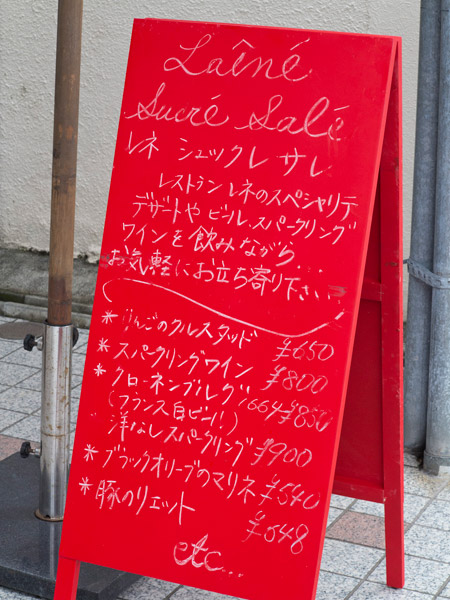 Laîné
Sucré Salé
レネ シュックレ サレ
レストラン レネのスペシャリテ
デザートや ビール、スパークリング
ワインを飲みながら...
お気軽にお立ち寄り下さい
* りんごのクルスタッド ¥650
* スパークリングワイン ¥800
* クローネンブルグ 1664 ¥850
(フランス 白ビール!)
洋なしスパークリング ¥900
* ブラックオリーブのマリネ ¥540
* 豚のリエット ¥548
etc...